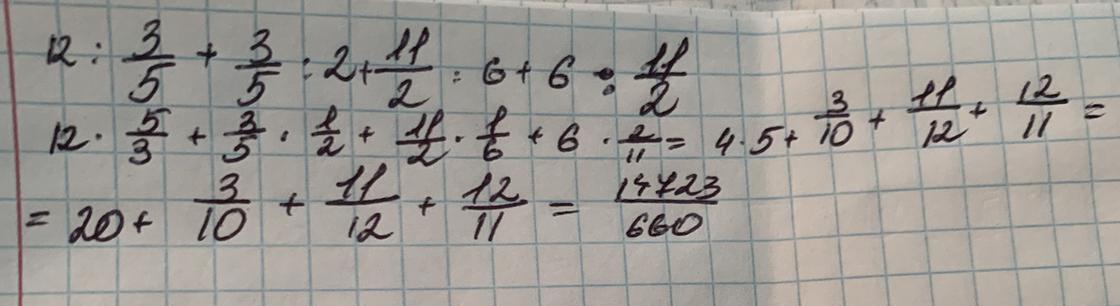 12 : 3/5 + 3/5 : 2 + 11/2 : 6 + 6 : 11/2
12 · 5/3 + 3/5 · 1/2 + 11/2 · 1/6 + 6 · 2/11 = 4 · 5 + 3/10 + 11/12 + 12/11 =
= 20 + 3/10 + 11/12 + 12/11 = 14723/660